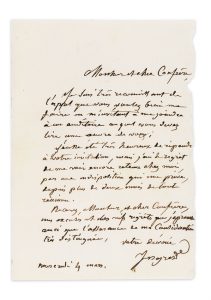 Monsieur et cher Confrère,
Je suis très reconnaissant de
l'appel que vous voulez bien me
faire en m'invitant à me joindre
à un auditoire auquel vous devez
lire une œuvre de vous;
J'eusse été très heureux de répondre
à votre invitation, mais j'ai le regret
de me voir encore retenu chez moi
par une indisposition qui me prive,
depuis plus de deux mois de toute
réunion.
Recevez, Monsieur et cher Confrère,
mes excuses et les vifs regrets que j'éprouve
ainsi que l'assurance de ma Considération
très distinguée,
votre dévoué
mercredi 4 mars.